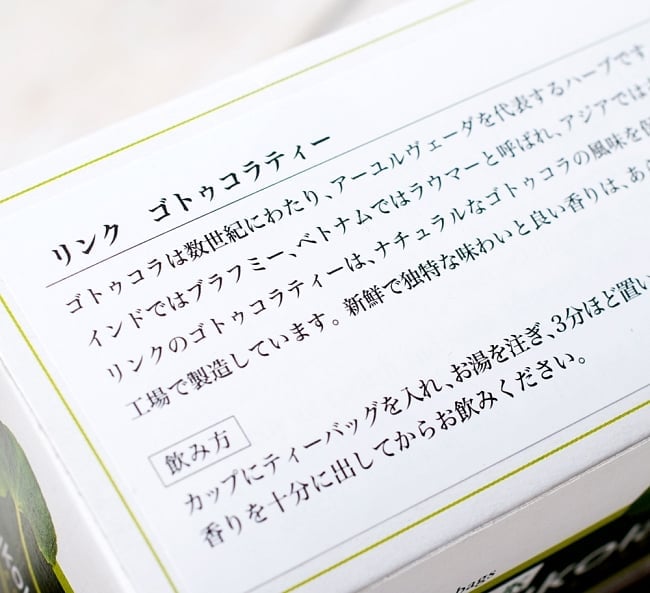 リンク ゴトゥコラティー
ゴトゥコラは数世紀にわたり、アーユルヴェーダを代表するハーブです
インドではブラフミー、ベトナムではラウマーと呼ばれ、アジアでは
リンクのゴトゥコラティーは、ナチュラルなゴトゥコラの風味を
工場で製造しています。新鮮で独特な味わいと良い香りは、あ
飲み方
カップにティーバッグを入れ、お湯を注ぎ、3分ほど置い
香りを十分に出してからお飲みください。
bags